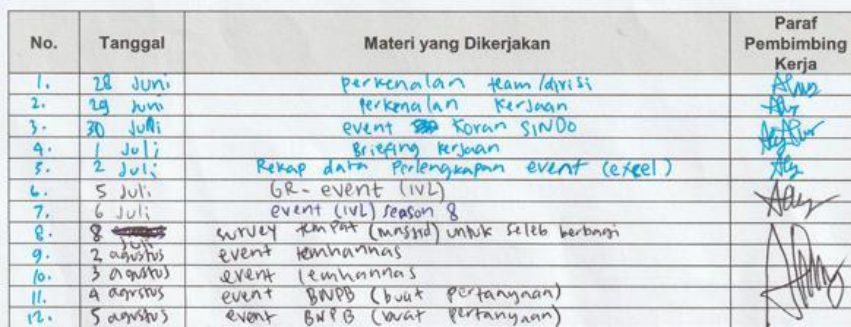 No. Tanggal Materi yang Dikerjakan Paraf Pembimbing Kerja
1. 28 Juni perkenalan team/divisi
2. 29 Juni perkenalan kerjaan
3. 30 Juni event Koran SINDO
4. 1 Juli Briefing kerjaan
5. 2 Juli Rekap data Perlengkapan event (excel)
6. 5 Juli GR- event (IVL)
7. 6 Juli event (IVL) season 8
8. 8 Juli survey tempat (masjid) untuk seleb berbagi
9. 2 agustus event lemhannas
10. 3 agustus event lemhannas
11. 4 agustus event BNPB (buat pertanyaan)
12. 5 agustus event BNPB (buat pertanyaan)